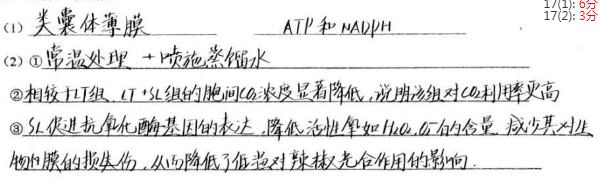 17(1): 6分
17(2): 3分
(1) 类囊体薄膜 ATP和NADPH
(2) ①常温处理 +喷施蒸馏水
②相较于LT组、LT+SL组的胞间CO2浓度显著降低,说明该组对CO2利用率更高
③SL促进抗氧化酶基因的表达,降低活性氧如H2O2、O2⁻的含量,减少其对生
物内膜的损伤,从而降低了低温对辣椒光合作用的影响.